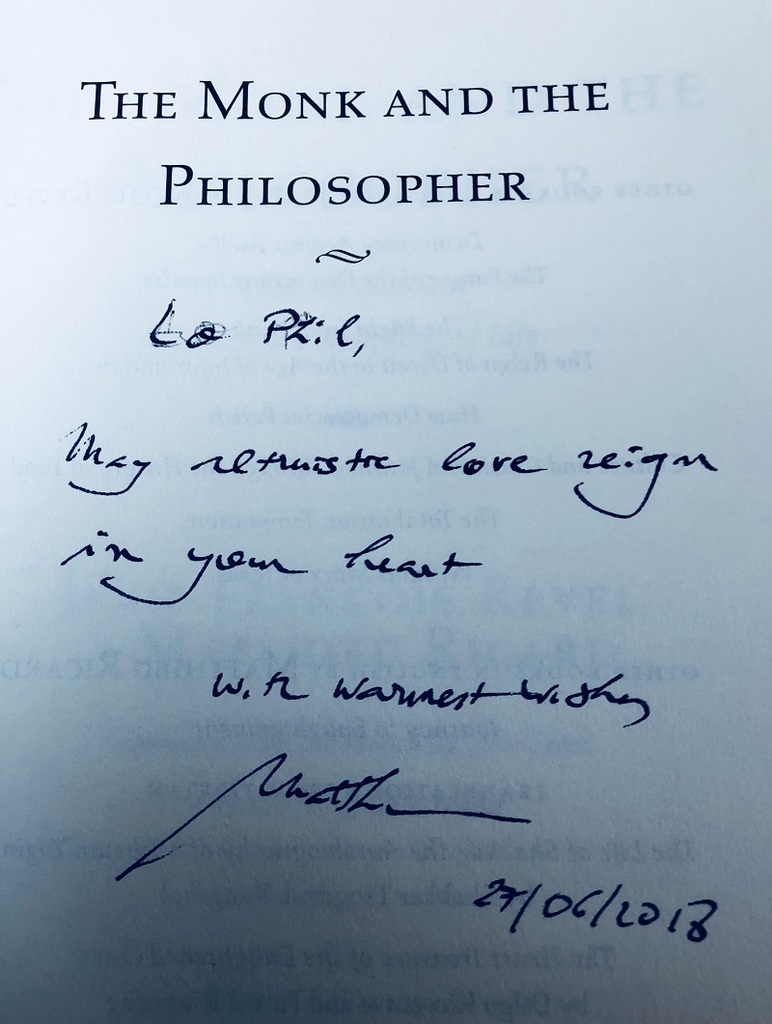 THE MONK AND THE
PHILOSOPHER
to Phil,
May altruistic love reign
in your heart
With warmest wishes
Matth
27/06/2018